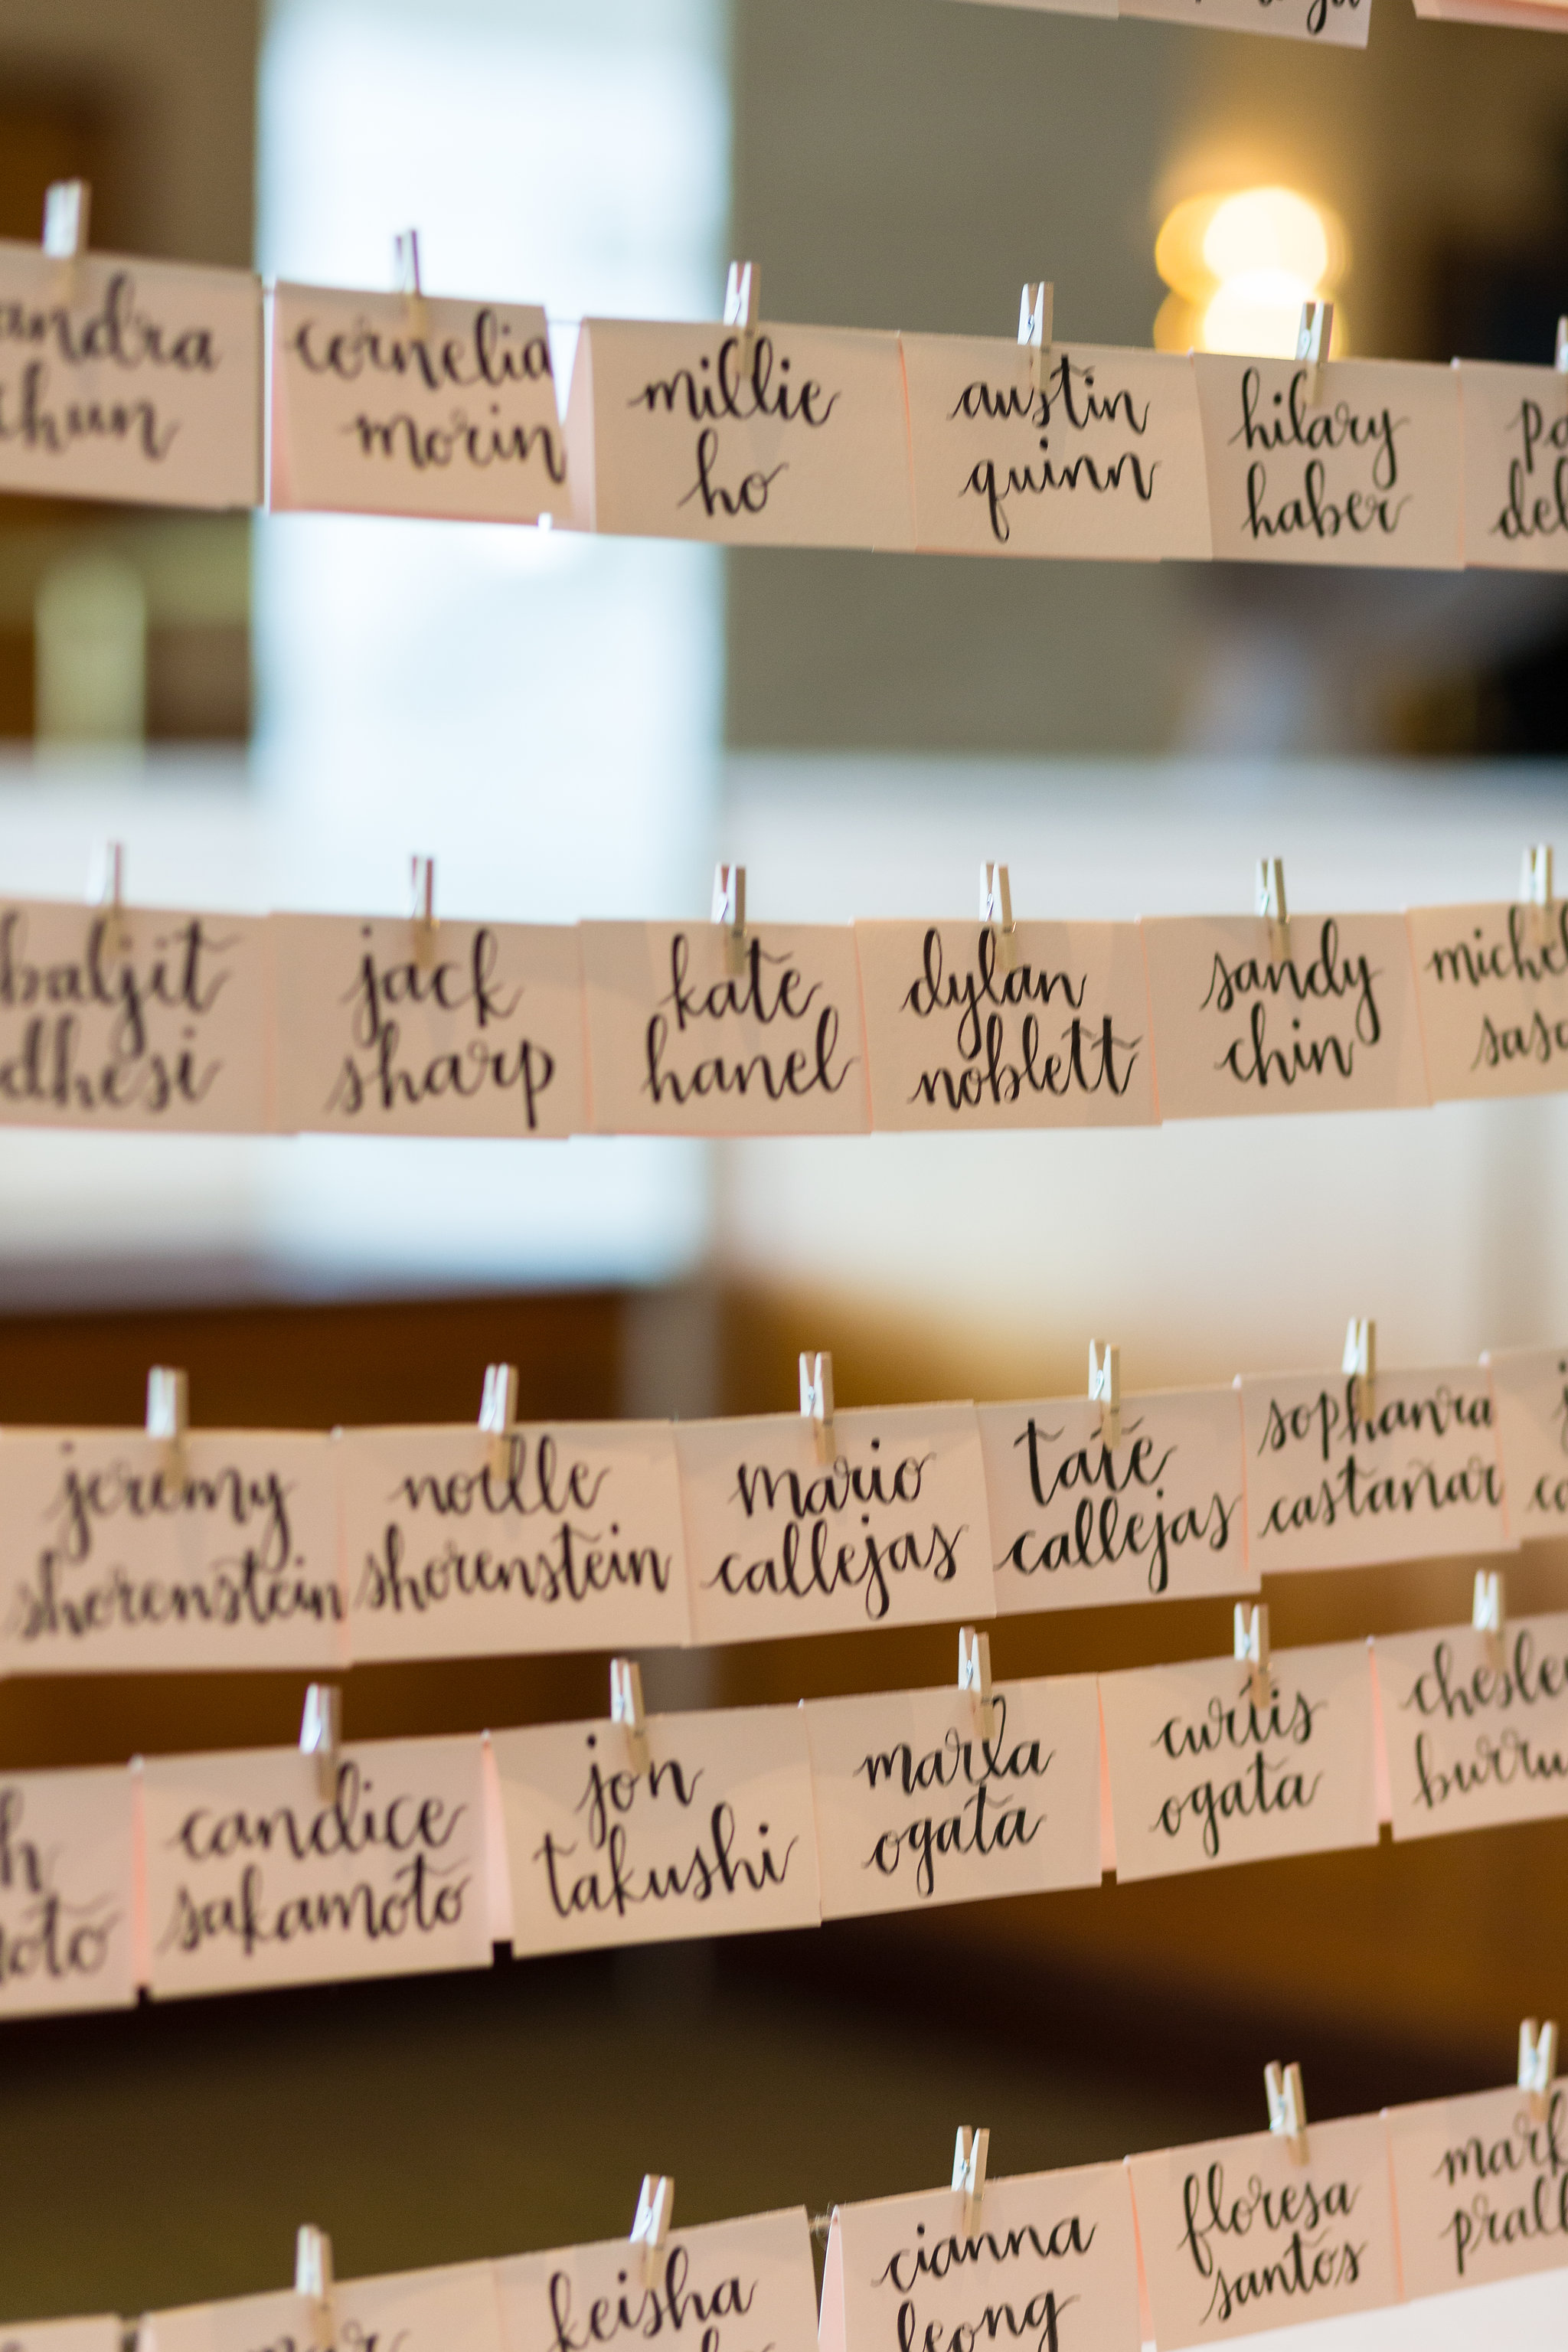 cornelia
morin
millie
ho
austin
quinn
hilary
haber
baljit
dhesi
jack
sharp
kate
hanel
dylan
noblett
sandy
chin
jeremy
shorenstein
noelle
shorenstein
mario
callejas
tate
callejas
sophanra
castañar
candice
sakamoto
jon
takushi
marla
ogata
curtis
ogata
keisha
cianna
leong
floresa
santos